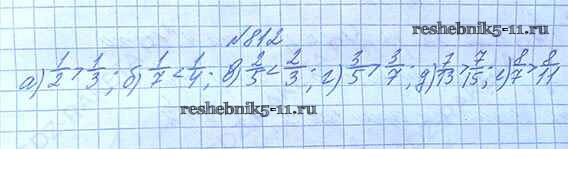 №812
reshebnik5-11.ru
а) 1/2 > 1/3; б) 1/7 < 1/4; в) 2/5 < 2/3; г) 3/5 > 3/7; д) 7/13 > 7/15; е) 8/7 > 8/11
reshebnik5-11.ru